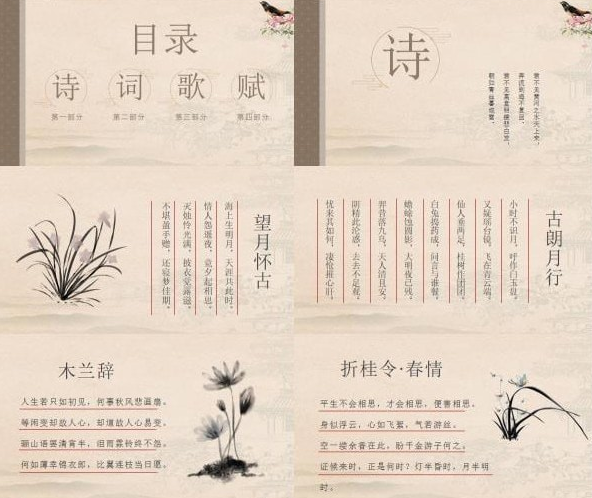 目录
诗 词 歌 赋
第一部分 第二部分 第三部分 第四部分
诗
君不见黄河之水天上来，
奔流到海不复回。
君不见高堂明镜悲白发，
朝如青丝暮成雪。
望月怀古
海上生明月，天涯共此时。
情人怨遥夜，竟夕起相思。
灭烛怜光满，披衣觉露滋。
不堪盈手赠，还寝梦佳期。
古朗月行
小时不识月，呼作白玉盘。
又疑瑶台镜，飞在青云端。
仙人垂两足，桂树作团团。
白兔捣药成，问言与谁餐。
蟾蜍蚀圆影，大明夜已残。
羿昔落九乌，天人清且安。
阴精此沦惑，去去不足观。
忧来其如何，凄怆摧心肝。
木兰辞
人生若只如初见，何事秋风悲画扇。
等闲变却故人心，却道故人心易变。
骊山语罢清宵半，泪雨霖铃终不怨。
何如薄幸锦衣郎，比翼连枝当日愿。
折桂令·春情
平生不会相思，才会相思，便害相思。
身似浮云，心如飞絮，气若游丝。
空一缕余香在此，盼千金游子何之。
证候来时，正是何时？灯半昏时，月半明
时。